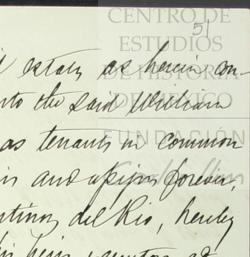 CENTRO DE
ESTUDIOS
DE HISTORIA
DE MÉXICO
FUNDACIÓN
51
estate, as herein con-
nto the said William
as tenants in common
and assigns forever,
del Rio, hereby
heirs